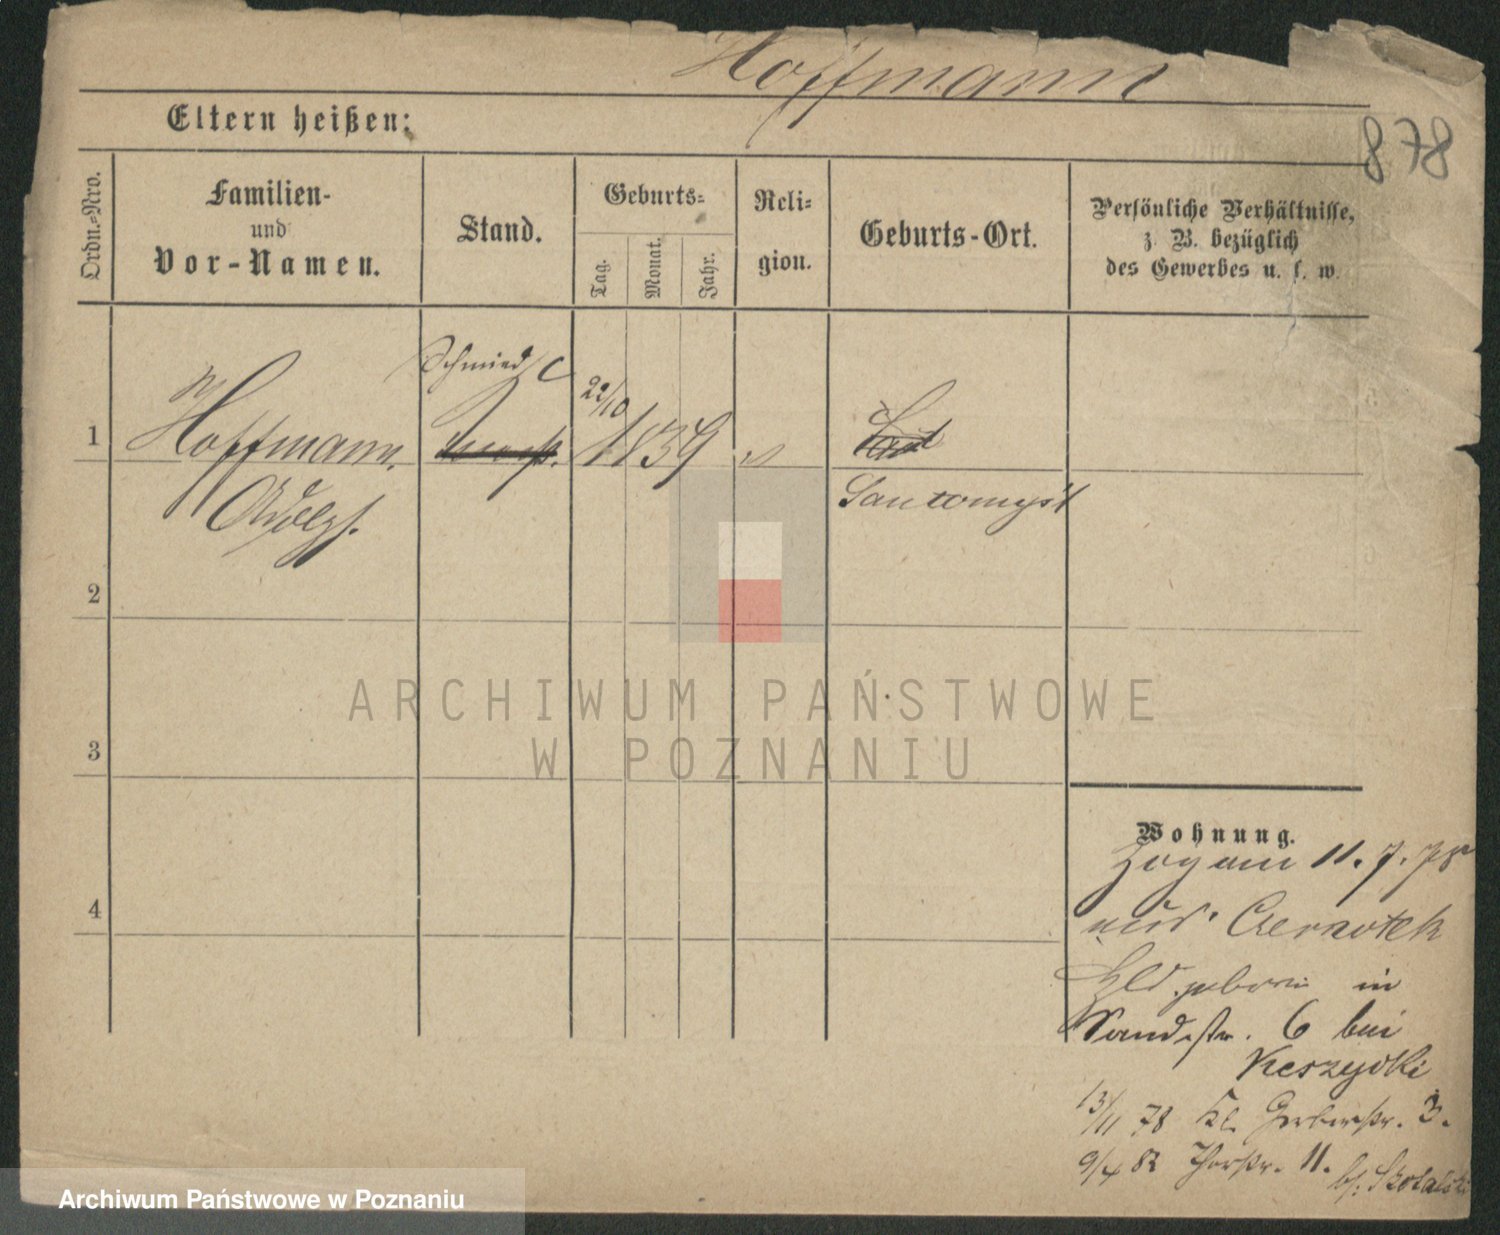 Hoffmann
Eltern heißen:
878
Ordn.-Nro.
Familien-
und
Vor-Namen.
Stand.
Geburts-
Tag.
Monat.
Jahr.
Reli-
gion.
Geburts-Ort.
Persönliche Verhältnisse,
z. B. bezüglich
des Gewerbes u. s. w.
1
Hoffmann.
Adolph.
Schmied
22/10
1839
Santomyśl
2
3
4
ARCHIWUM PAŃSTWOWE
W POZNANIU
Wohnung.
Zog am 11. 7. 78
aus
in
Sandstr. 6 bei
Keszycki
13/11 78 Kl. Gerberstr. 3.
9/4 82 Thorstr. 11.
Archiwum Państwowe w Poznaniu